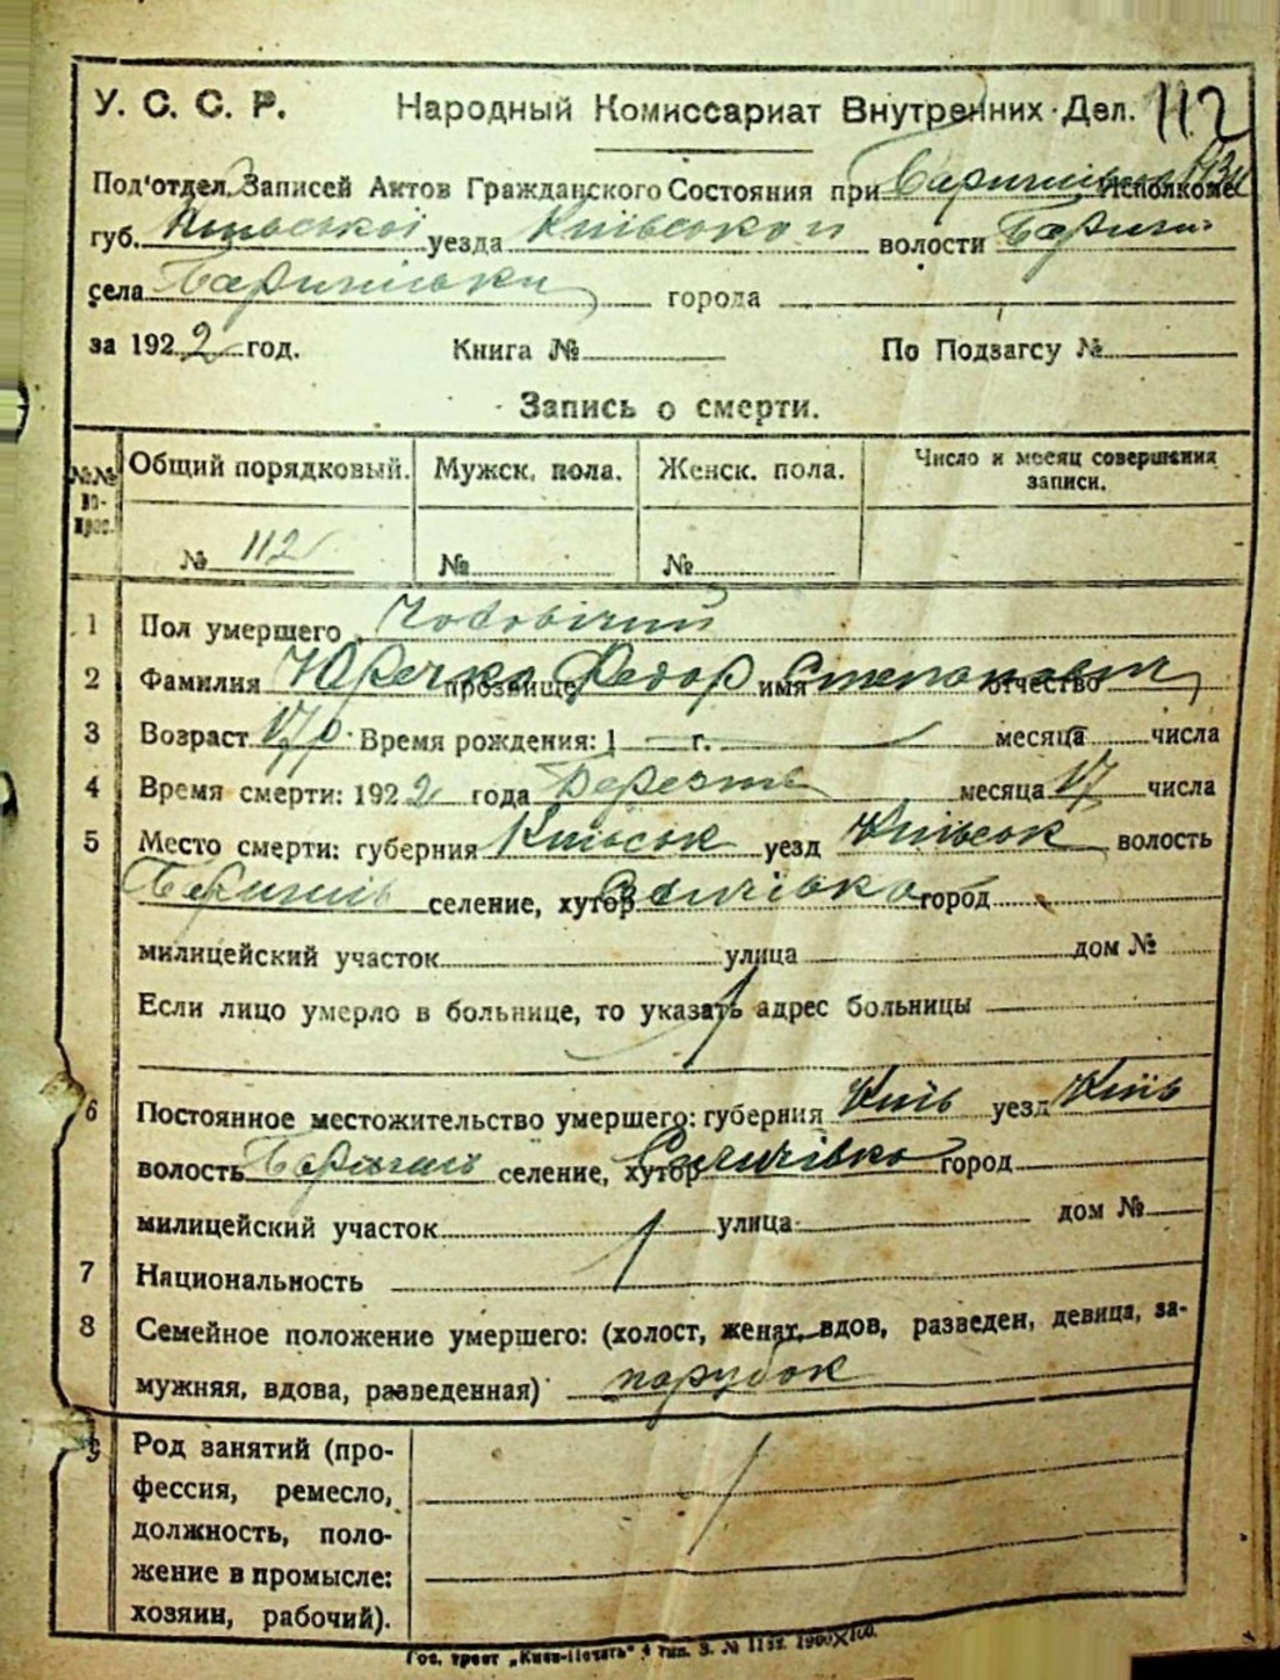 У. С. С. Р. Народный Комиссариат Внутренних Дел. 112
Под'отдел Записей Актов Гражданского Состояния при Исполкоме
губ. Київської уезда Київської волости Бариш
села Баришівки города
за 1922 год. Книга № По Подзагсу №
Запись о смерти.
№№ вопрос. Общий порядковый. Мужск. пола. Женск. пола. Число и месяц совершения
записи.
№ 112 № №
1 Пол умершего Чоловічий
2 Фамилия Юречко прозвище Федор имя Степанович отчество
3 Возраст 17 р. Время рождения: 1 г. месяца числа
4 Время смерти: 1922 года Березня месяца 17 числа
5 Место смерти: губерния Київськ уезд Київськ волость
Баришів селение, хутор город
милицейский участок улица дом №
Если лицо умерло в больнице, то указать адрес больницы
6 Постоянное местожительство умершего: губерния Київ уезд Київ
волость Бариш селение, хутор город
милицейский участок улица дом №
7 Национальность
8 Семейное положение умершего: (холост, женат, вдов, разведен, девица, за-
мужняя, вдова, разведенная) парубок
9 Род занятий (про-
фессия, ремесло,
должность, поло-
жение в промысле:
хозяин, рабочий).
Гос. трест „Киев-Печать" 4 тип. З. № 1132. 1900×100.